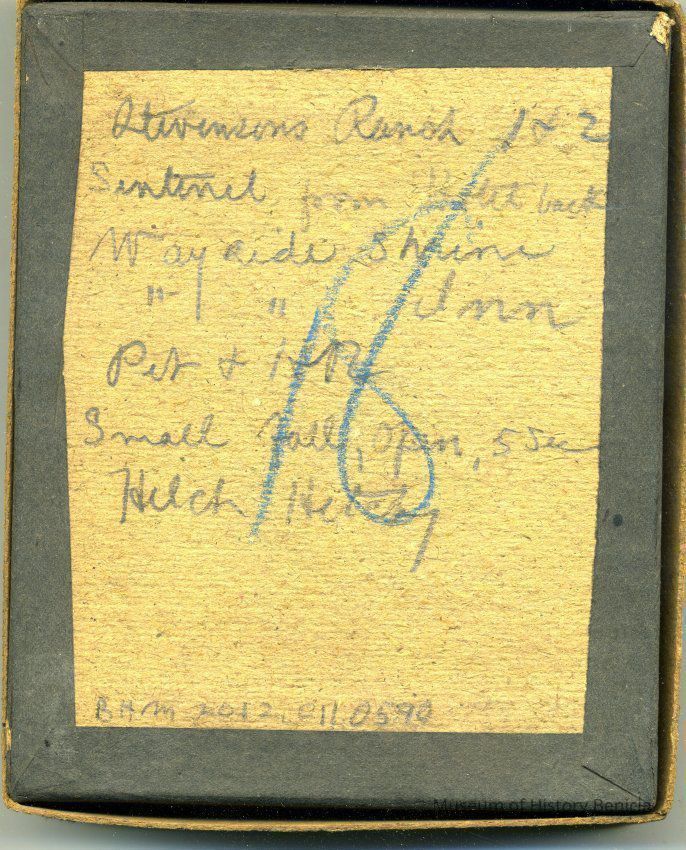 Stevensons Ranch 1 & 2
Sentinel from back
Wayside Shrine
" " Inn
Pet &
Small Falls, Open, 5 Sec
Hetch Hetchy
16
BHM 2012.011.0590
Museum of History Benicia